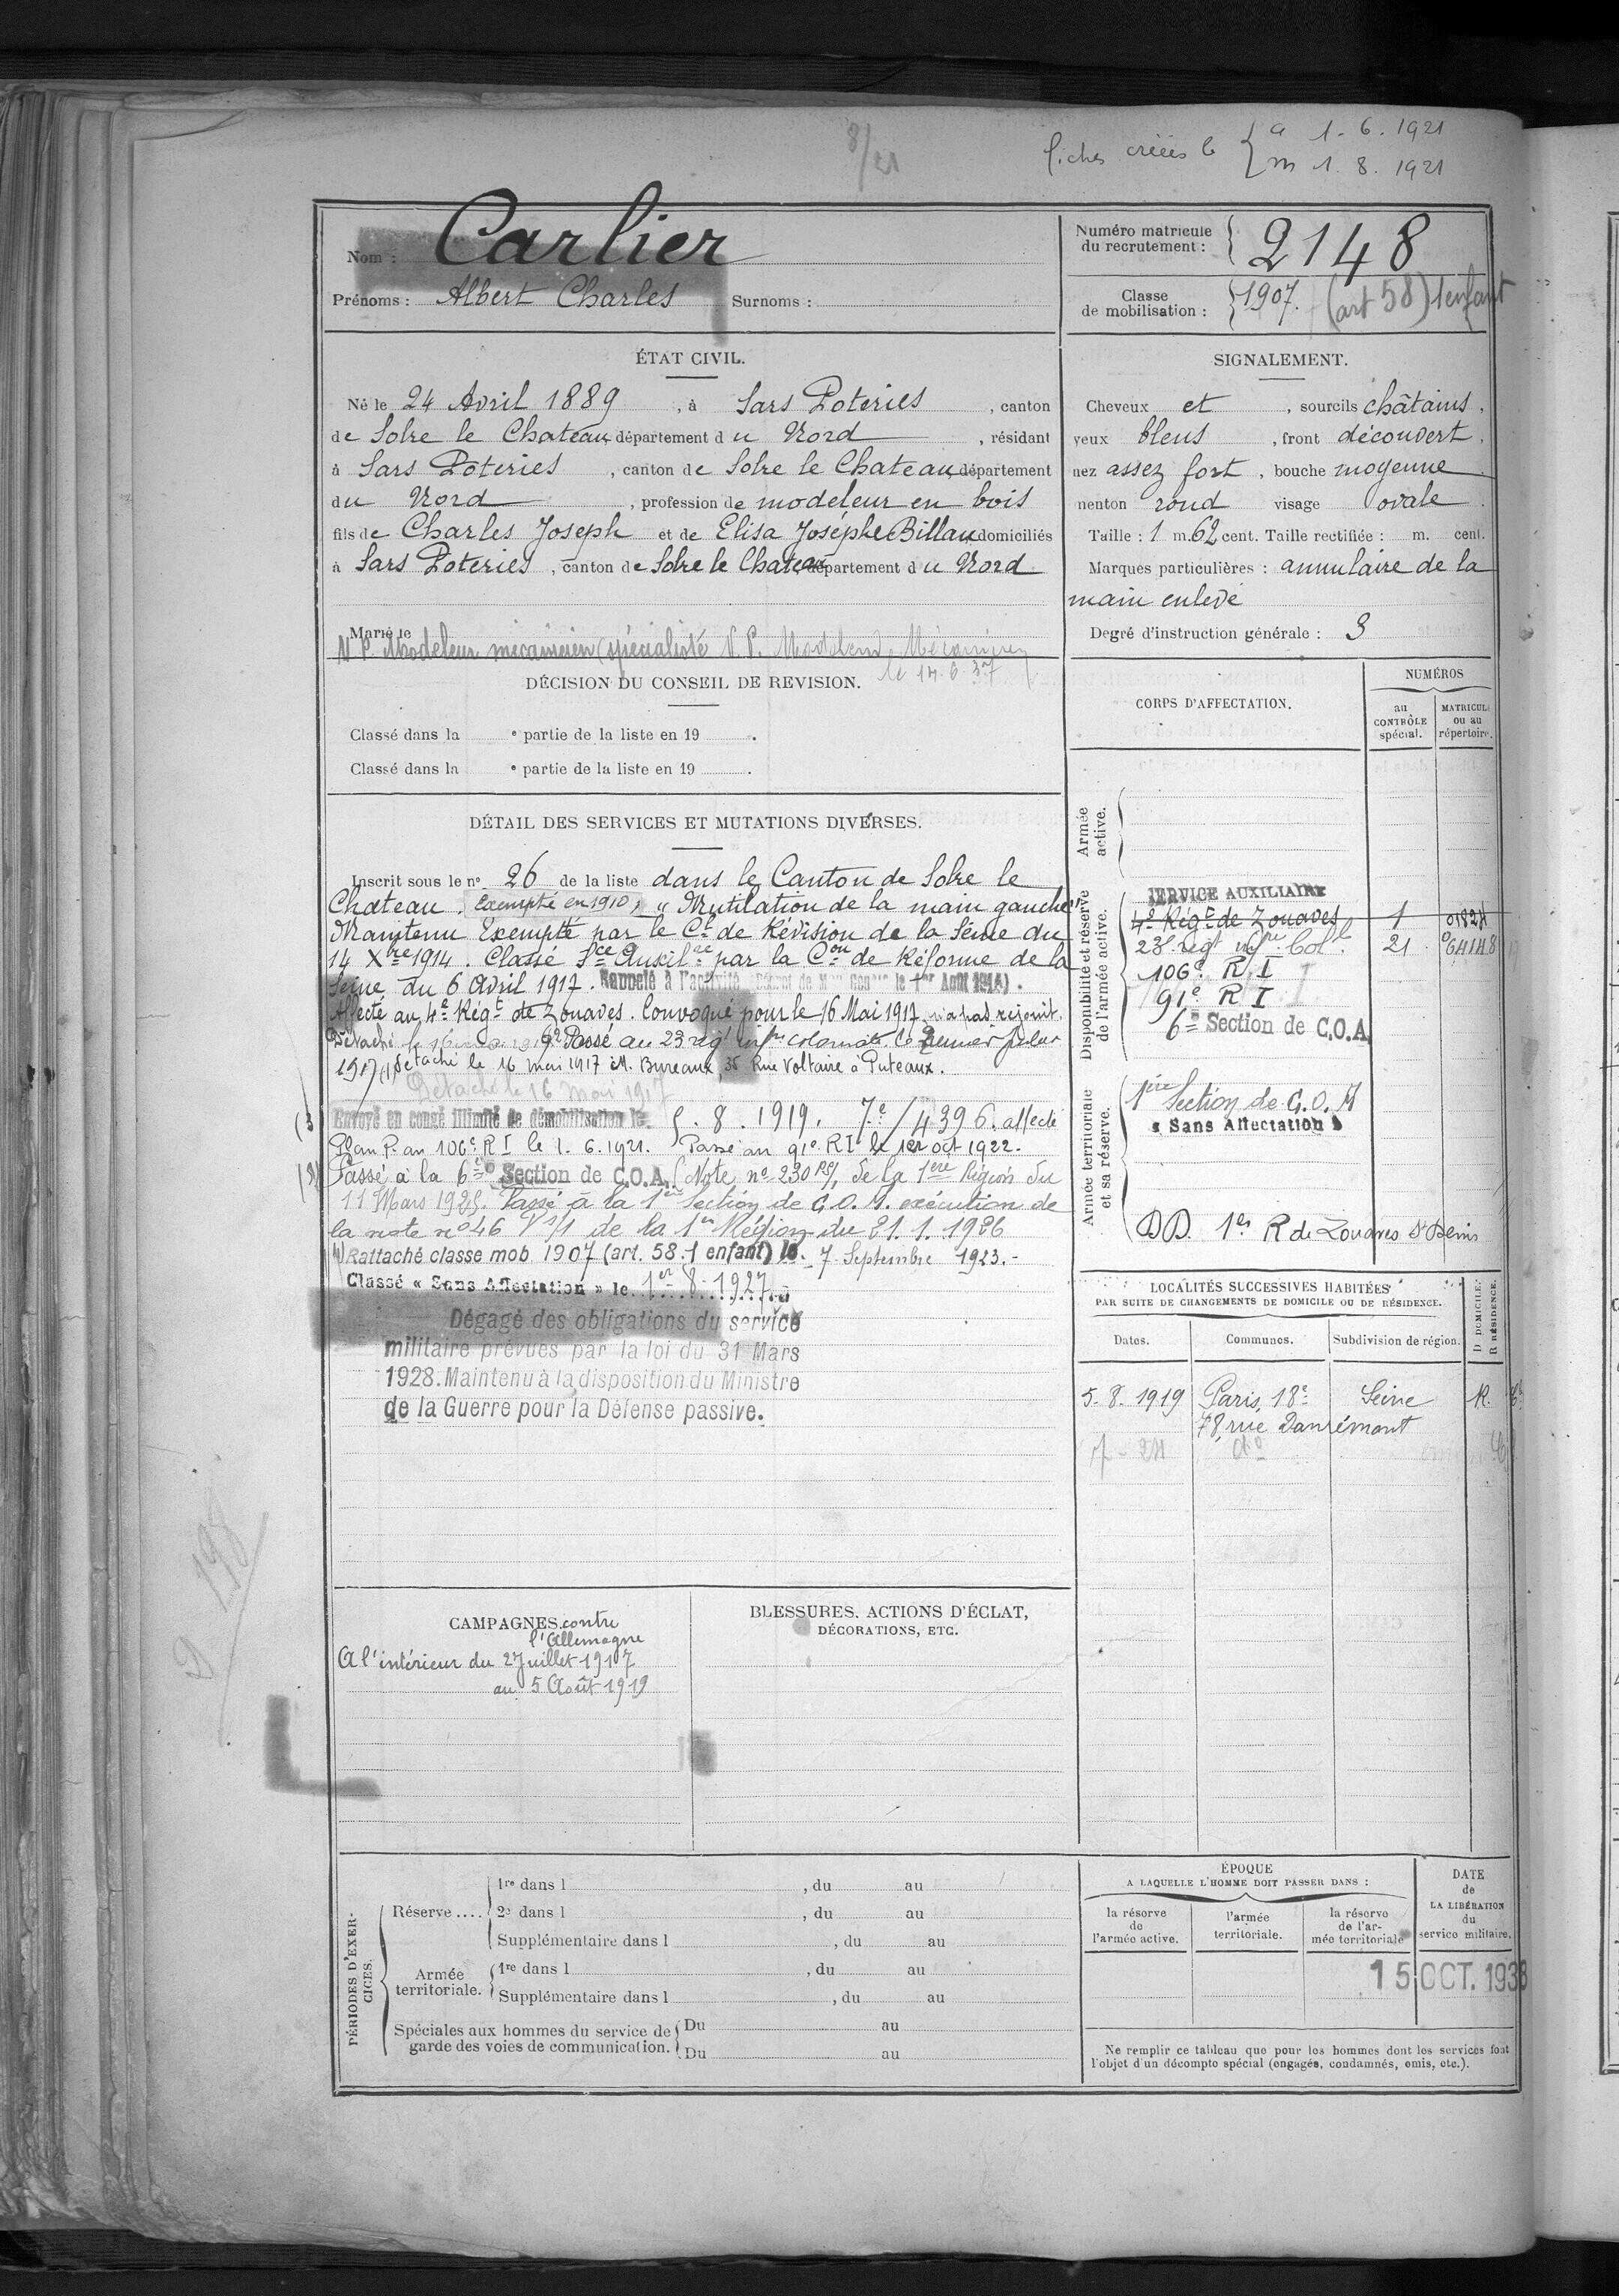 8/21
fiches créées le { a 1. 6. 1921
m 1. 8. 1921
Nom : Carlier
Prénoms : Albert Charles Surnoms :
Numéro matricule du recrutement : { 2148
Classe de mobilisation : { 1907. (art 58) 1 enfant
ÉTAT CIVIL.
Né le 24 Avril 1889, à Sars Poteries, canton
de Solre le Chateau, département du Nord, résidant
à Sars Poteries, canton de Solre le Chateau, département
du Nord, profession de modeleur en bois
fils de Charles Joseph et de Elisa Josèphe Billau, domiciliés
à Sars Poteries, canton de Solre le Chateau, département du Nord
Marié le
N P. Modeleur mécanicien (spécialiste N. P. Modeleur Mécanicien
le 14. 6. 37
SIGNALEMENT.
Cheveux et, sourcils châtains,
yeux bleus, front découvert,
nez assez fort, bouche moyenne
menton rond visage ovale.
Taille : 1 m. 62 cent. Taille rectifiée : m. cent.
Marques particulières : annulaire de la
main enlevé
Degré d'instruction générale : 3
DÉCISION DU CONSEIL DE REVISION.
Classé dans la e partie de la liste en 19 .
Classé dans la e partie de la liste en 19 .
DÉTAIL DES SERVICES ET MUTATIONS DIVERSES.
Inscrit sous le n° 26 de la liste dans le Canton de Solre le
Chateau. Exempté en 1910, "Mutilation de la main gauche"
Maintenu Exempté par le Cl de Révision de la Seine du
14 Xbre 1914. Classé Sce Auxilre par la Con de Réforme de la
Seine du 6 Avril 1917. Rappelé à l'activité (Décret de Mon Génle le 1er Août 1914).
Affecté au 4e Régt de Zouaves. Convoqué pour le 16 Mai 1917, n'a pas rejoint.
Détaché le 16 Passé au 23 régt infie coloniale le 2
1917 (1) détaché le 16 mai 1917 M. Bureaux, 35 Rue Voltaire à Puteaux.
Détaché le 16 mai 1917
(3 Envoyé en congé illimité de démobilisation le 5. 8. 1919. 7e/4396. affecté
Plan P. au 106e R I le 1. 6. 1921. Passé au 91e RI le 1er oct 1922.
Passé à la 6e Section de C.O.A. (Note n° 230 RS/1 de la 1ère Région du
11 Mars 1925. Passé à la 1ère Section de C.O.M. exécution de
la note n° 46 1/1 de la 1ère Région du 21. 1. 1926
4) Rattaché classe mob. 1907 (art. 58. 1 enfant) le. 7 Septembre 1923.-
Classé « Sans Affectation » le 1er 8 - 1927
Dégagé des obligations du service
militaire prévues par la loi du 31 Mars
1928. Maintenu à la disposition du Ministre
de la Guerre pour la Défense passive.
CORPS D'AFFECTATION.
NUMÉROS
au CONTRÔLE spécial.
MATRICULE ou au répertoire.
Armée active.
Disponibilité et réserve de l'armée active.
SERVICE AUXILIAIRE
4e Régt de Zouaves 1 01824
23e régt infre Colle 21 64148
106e R I
91e R I
6e Section de C.O.A
Armée territoriale et sa réserve.
1ère Section de C.O.M
« Sans Affectation »
DD. 1er R de Zouaves St Denis
LOCALITÉS SUCCESSIVES HABITÉES
PAR SUITE DE CHANGEMENTS DE DOMICILE OU DE RÉSIDENCE.
Dates. Communes. Subdivision de région. D DOMICILE. R RÉSIDENCE.
5. 8. 1919 Paris, 18e Seine R.
78, rue Danrémont
7 - 24 do
2 198
CAMPAGNES. contre
l'Allemagne
A l'intérieur du 2 Juillet 1917
au 5 Août 1919
BLESSURES, ACTIONS D'ÉCLAT,
DÉCORATIONS, ETC.
PÉRIODES D'EXERCICES.
Réserve .... 1re dans l , du au
2e dans l , du au
Supplémentaire dans l , du au
Armée territoriale. 1re dans l , du au
Supplémentaire dans l , du au
Spéciales aux hommes du service de garde des voies de communication. Du au
Du au
ÉPOQUE
A LAQUELLE L'HOMME DOIT PASSER DANS :
la réserve de l'armée active.
l'armée territoriale.
la réserve de l'armée territoriale
DATE de LA LIBÉRATION du service militaire.
15 OCT. 1938
Ne remplir ce tableau que pour les hommes dont les services font
l'objet d'un décompte spécial (engagés, condamnés, omis, etc.).